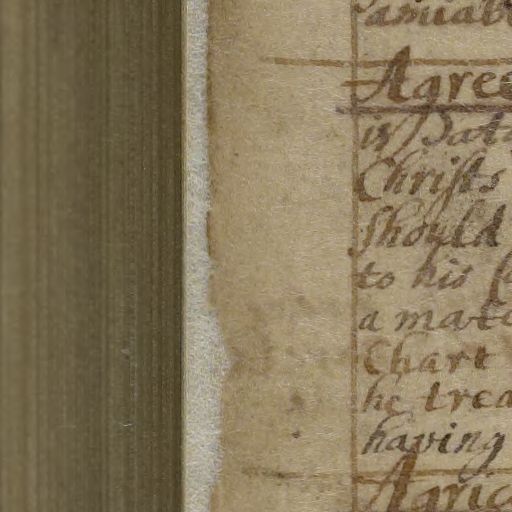 amiabl
Agree
is Pata
Christs
should
to his
a mate
Chart
he trea
having
Agric